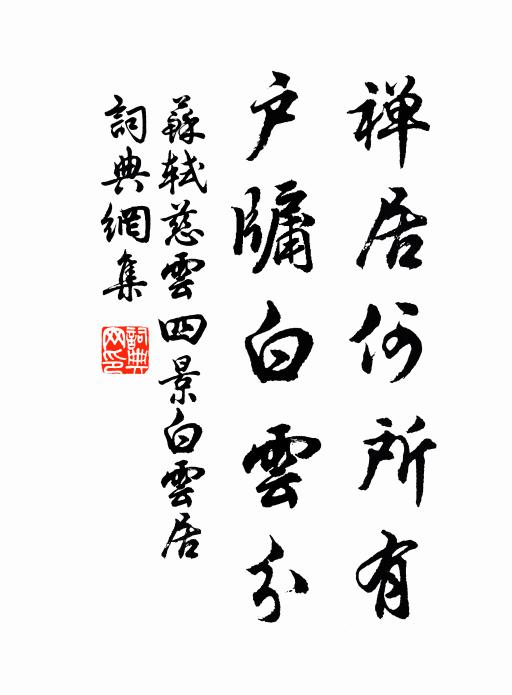 禅居何所有
户牖白雲分
蘇軾慈雲四景白雲居
詞典網集
詞典网印